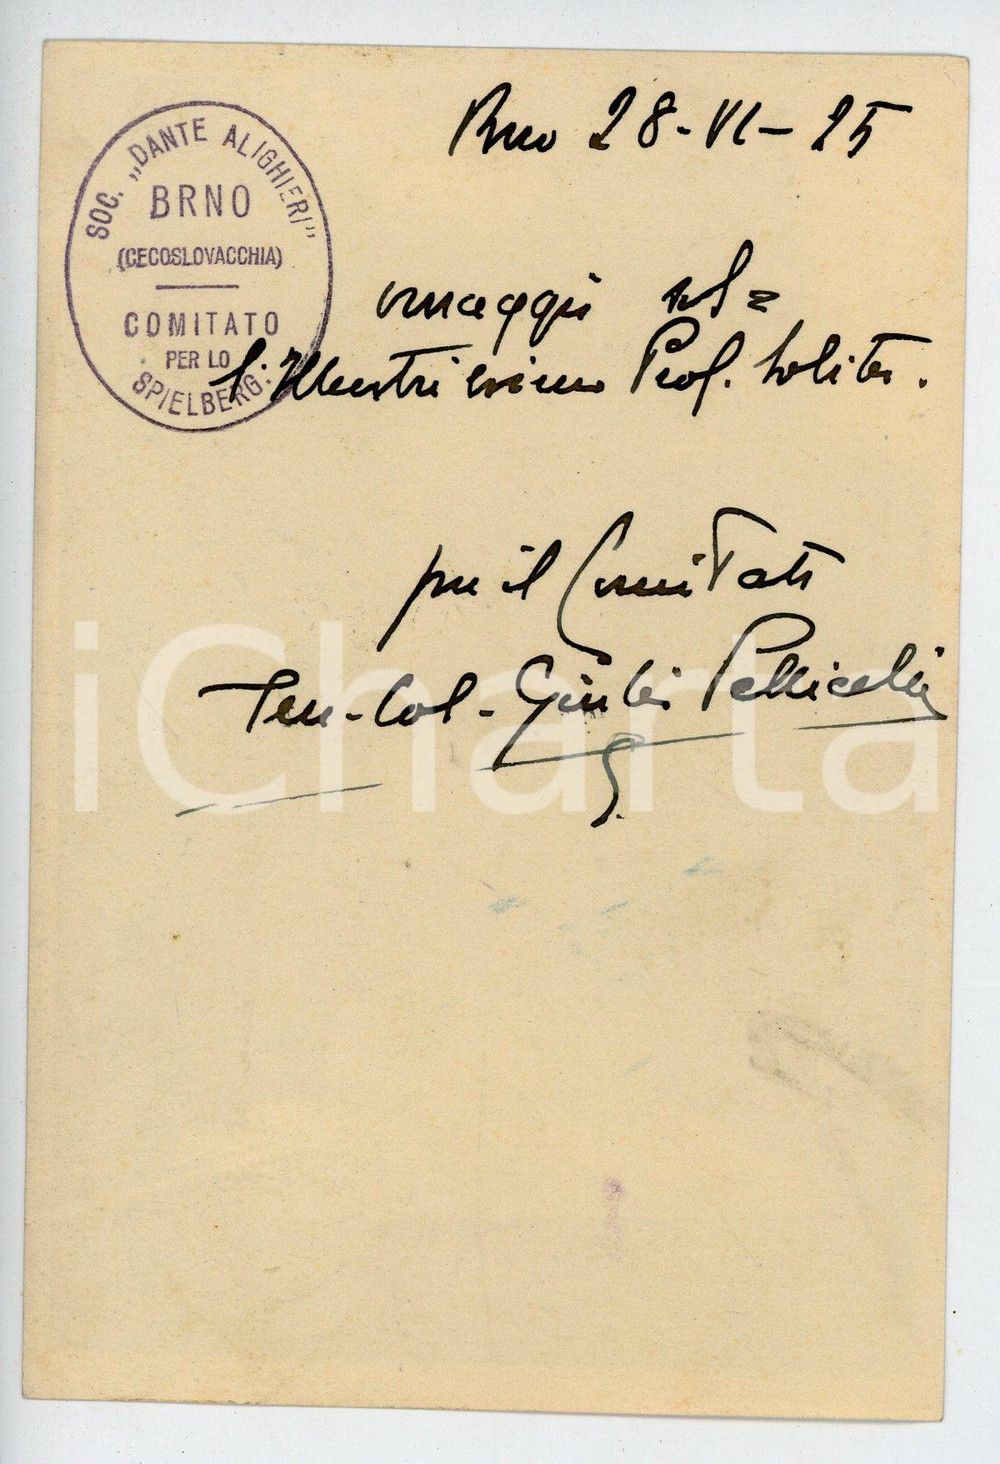 SOC. „DANTE ALIGHIERI"
BRNO
(CECOSLOVACCHIA)
COMITATO
PER LO
SPIELBERG.
Brno 28-VI-25
omaggio al=
l'Illustrissimo Prof. Solitro.
per il Comitato
Ten-Col- Giulio Pellicelli
iCharta